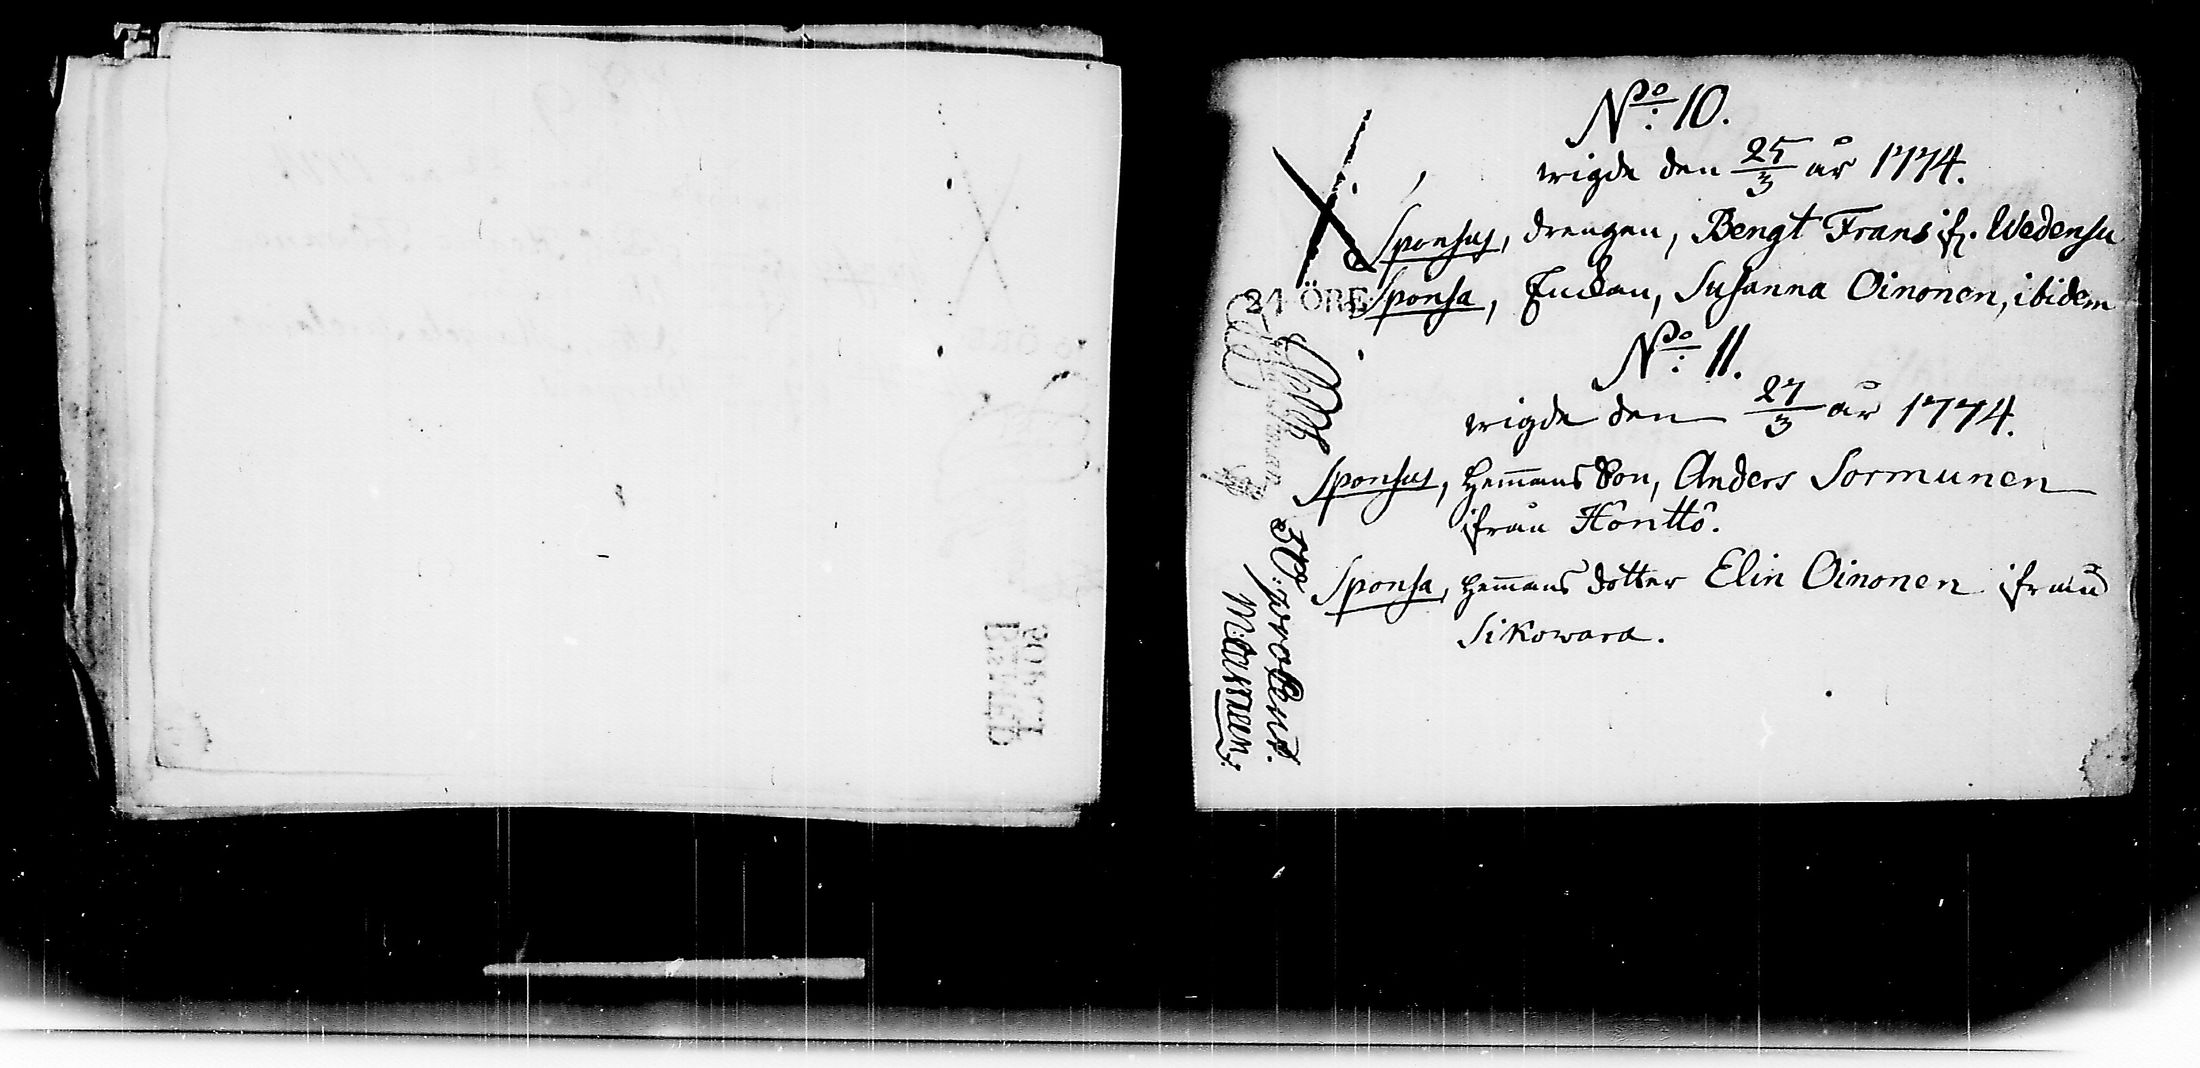 No: 10.
wigde den 25/3 år 1774.
Sponsus, drengen, Bengt Frans if. Wedensu
Sponsa, Enckan, Susanna Oinonen, ibidem
24 ÖRE
No: 11.
wigde den 27/3 år 1774.
Sponsus, Hem̄ans Son, Anders Sormunen
ifrån Hônttô.
Sponsa, Hem̄ans dotter Elin Oinonen ifrån
Sikowara.